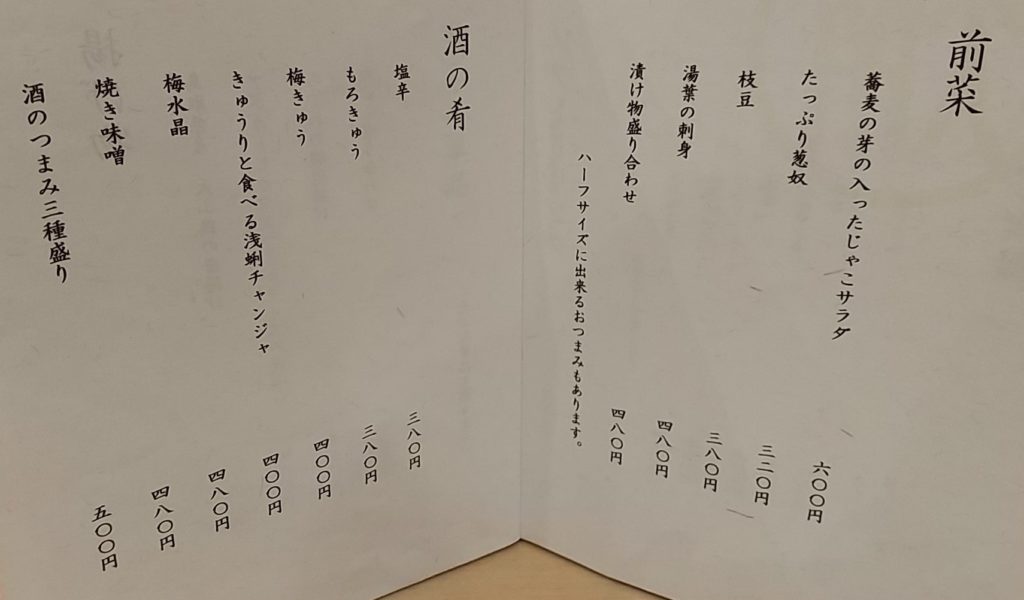 前菜
蕎麦の芽の入ったじゃこサラダ 六〇〇円
たっぷり葱奴 三二〇円
枝豆 三八〇円
湯葉の刺身 四八〇円
漬け物盛り合わせ 四八〇円
ハーフサイズに出来るおつまみもあります。
酒の肴
塩辛 三八〇円
もろきゅう 三八〇円
梅きゅう 四〇〇円
きゅうりと食べる浅蜊チャンジャ 四〇〇円
梅水晶 四八〇円
焼き味噌 四八〇円
酒のつまみ三種盛り 五〇〇円